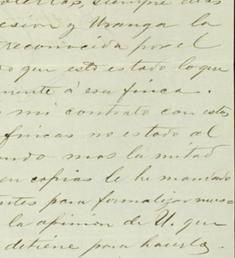 siempre
esion y Uranga la
reconocida por el
o que esto estado lo que
mente á esa finca.
mi contrato con estas
fincas no estado al
undo mas la mitad
en copias le he mandado
ntes para formalizar nues
la opinion de U. que
detiene para hacerlo.